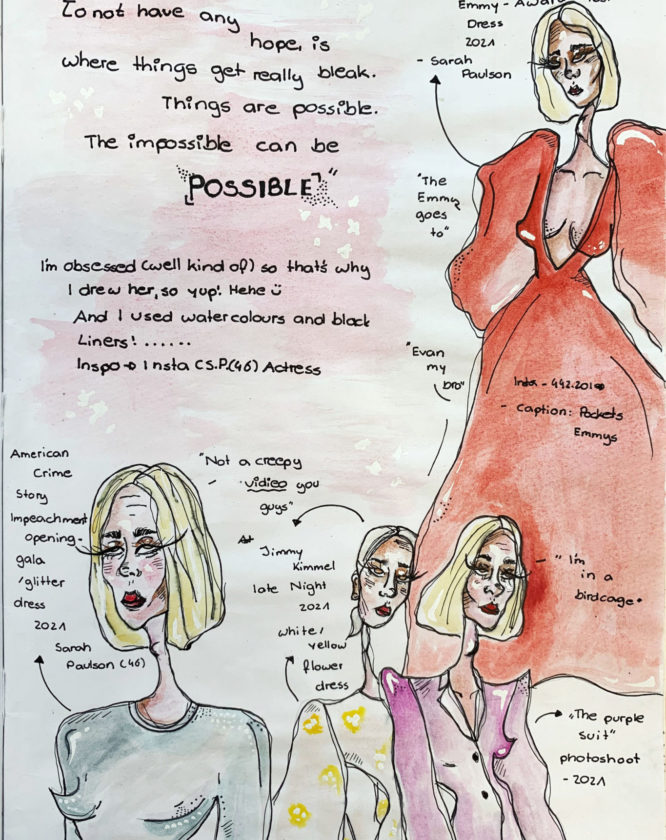 To not have any
hope, is
where things get really bleak.
Things are possible.
The impossible can be
"POSSIBLE"
I'm obsessed (well kind of) so that's why
I drew her, so yup! Hehe ü
And I used watercolours and black
Liners! ......
Inspo → Insta (S.P.(46) Actress
Emmy - Awards
Dress
2021
- Sarah
Paulson
"The
Emmy
goes
to"
"Evan
my
bro"
- Caption: Pockets
Emmys
American
Crime
Story
Impeachment
opening-
gala
/glitter
dress
2021
Sarah
Paulson (46)
"Not a creepy
- vidieo you
guys"
At
Jimmy
Kimmel
late Night
2021
white/
yellow
flower
dress
- "I'm
in a
birdcage.
"The purple
suit"
photoshoot
- 2021